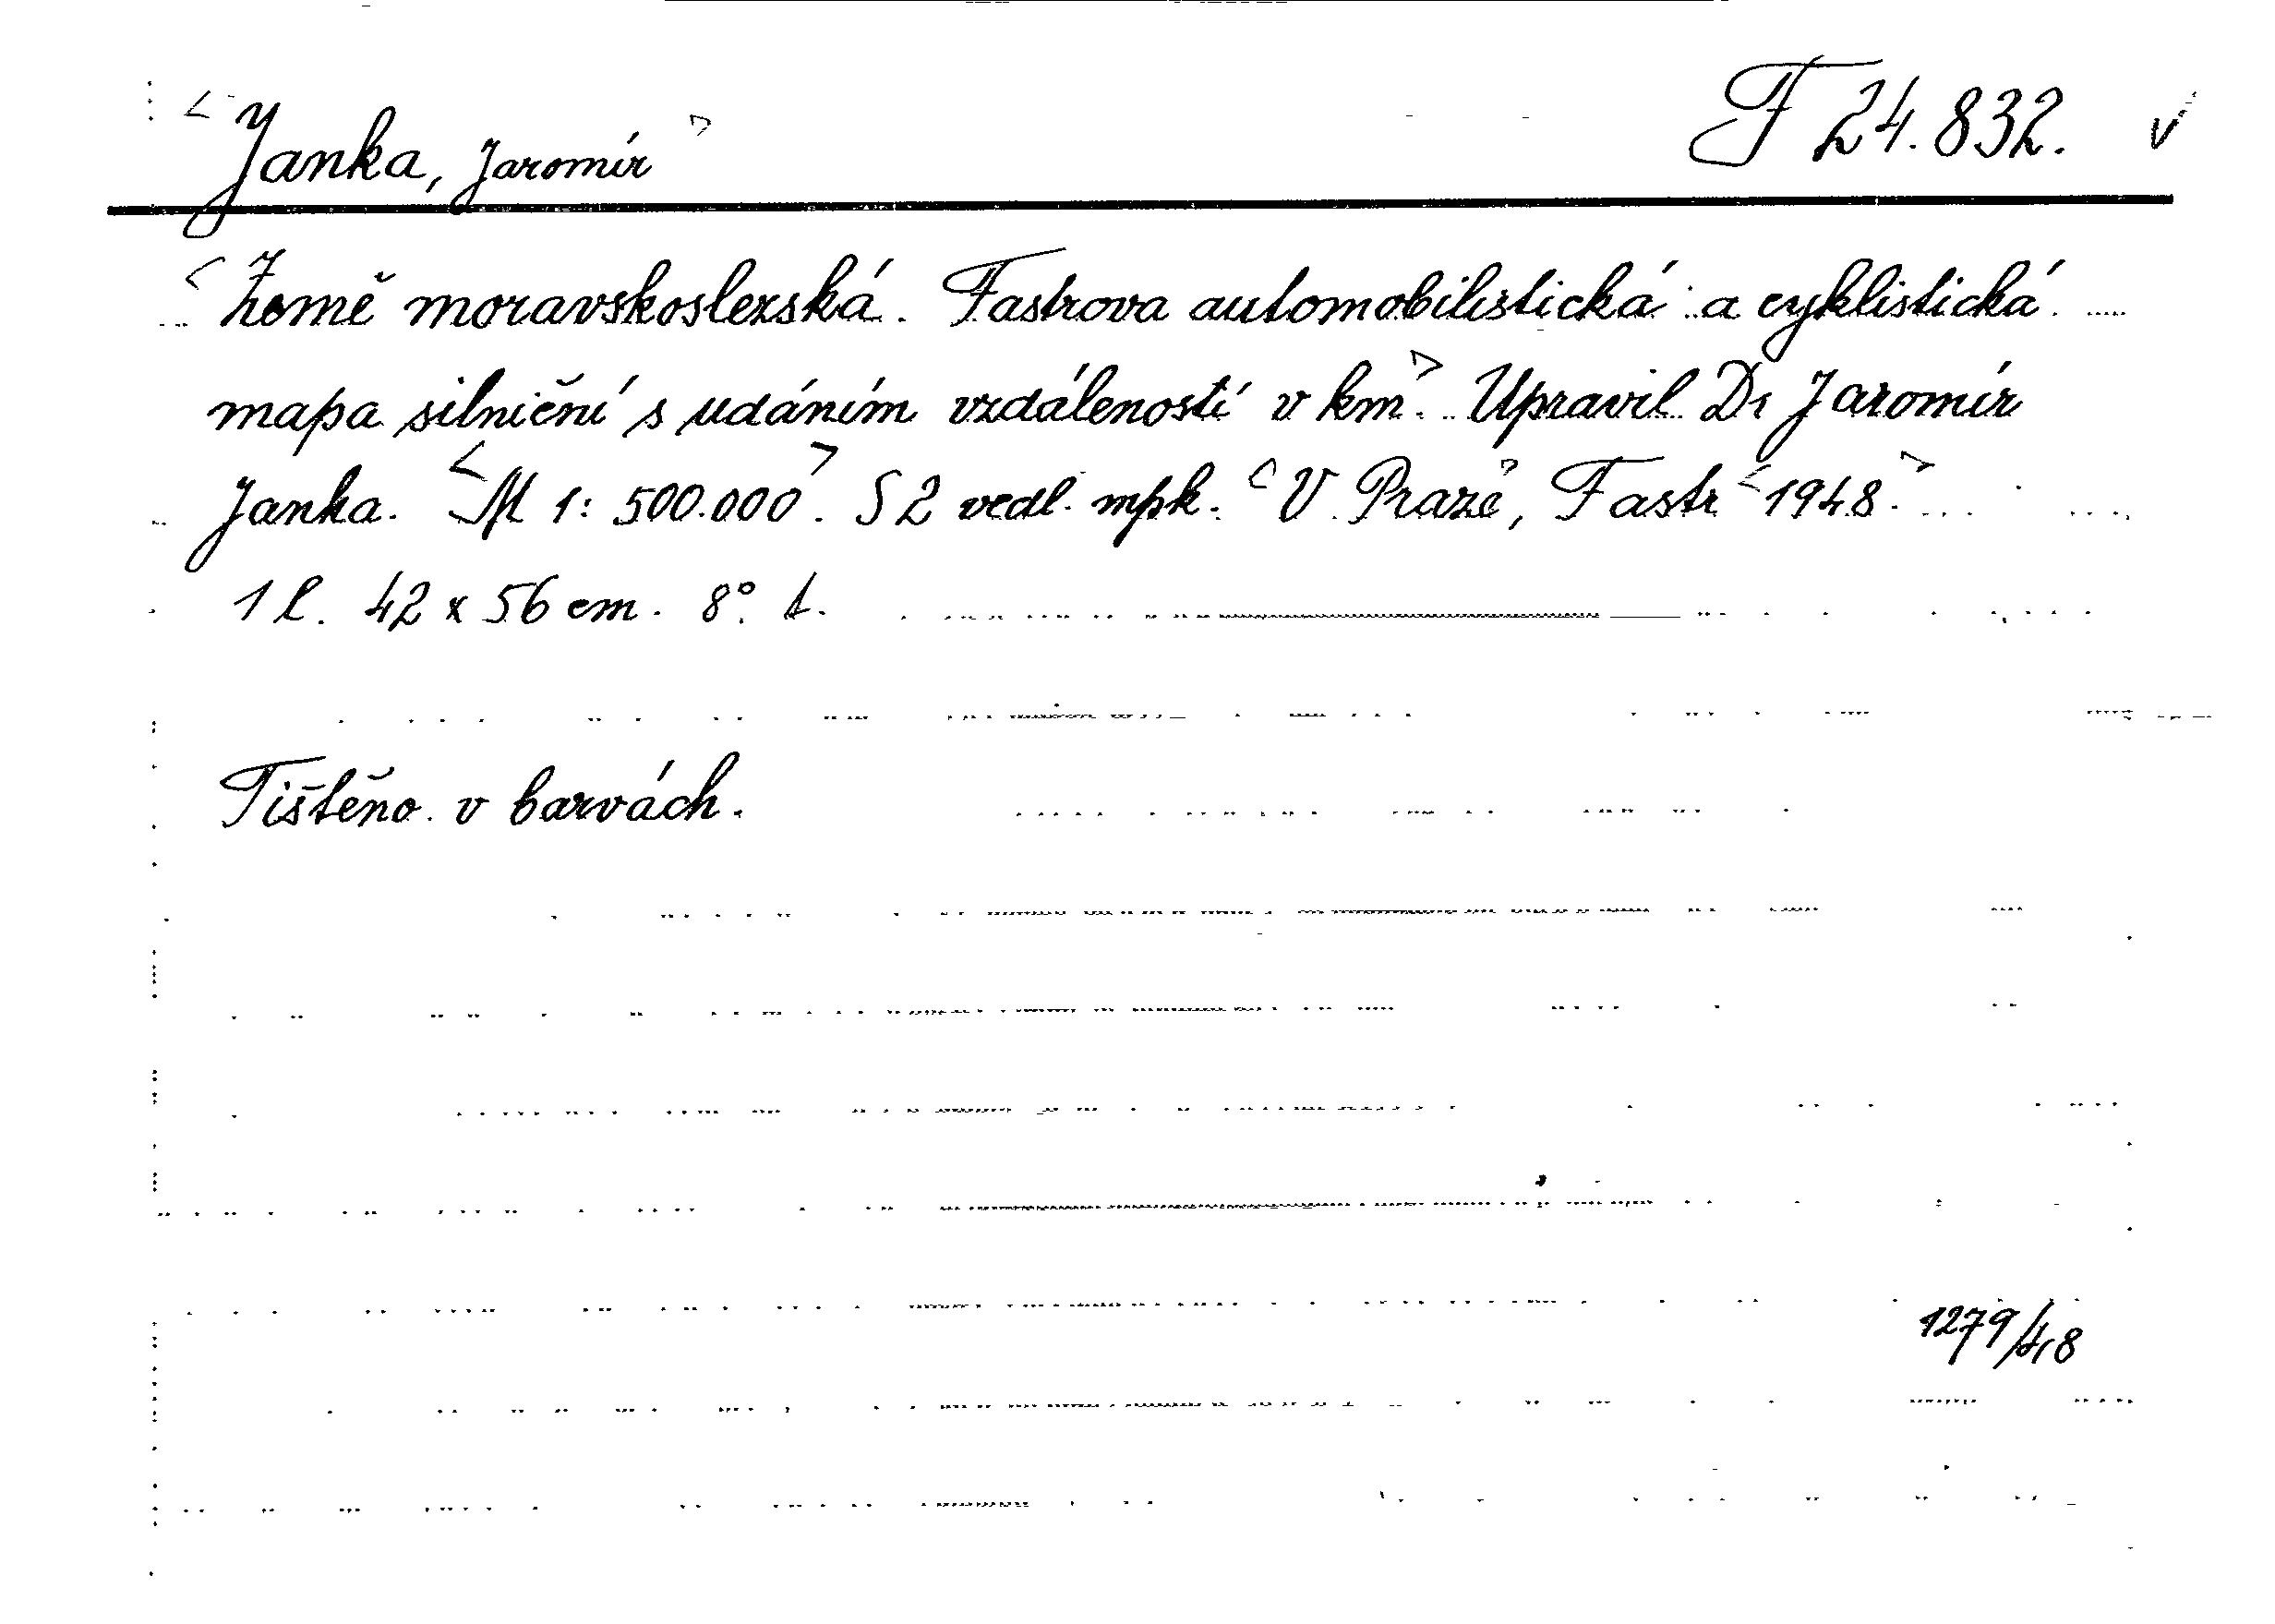 < Janka, Jaromír > F 24.832. v
< Země moravskoslezská. Fastrova automobilistická a cyklistická
mapa silniční s udáním vzdáleností v km >. Upravil Dr Jaromír
Janka. < M 1: 500.000 >. S 2 vedl. mpk. < V Praze >, Fastr < 1948. >
1 l. 42 x 56 cm. 8°. t.
Tištěno v barvách.
1279/48